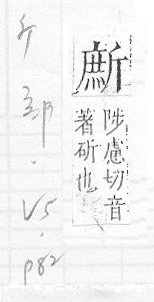 陟慮切音
著斫也
斤部．V5．p82